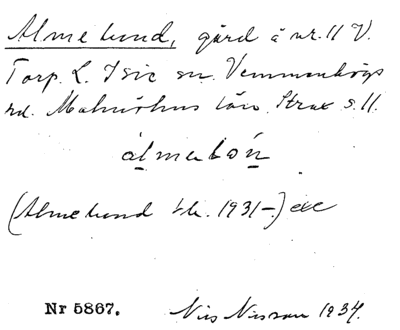 Almelund, gård å nr. 11 V.
Torp. L. Isie sn. Vemmenhögs
hd. Malmöhus län. Strax s. 11.
álmalòn
(Almelund tk. 1931–)
Nr 5867. Nils Nilsson 1934.